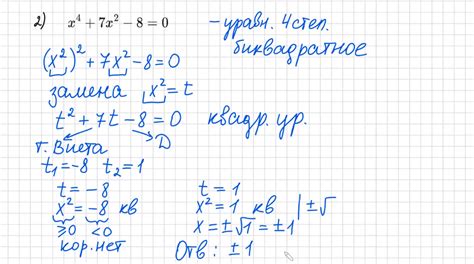 2) x⁴ + 7x² − 8 = 0 – уравн. 4 степ.
биквадратное
(x²)² + 7x² − 8 = 0
замена x² = t
t² + 7t − 8 = 0 квадр. ур.
т. Виета D
t₁ = −8 t₂ = 1
t = −8 t = 1
x² = −8 кв x² = 1 кв | ±√
≥0 <0 x = ±√1 = ±1
кор. нет Отв: ±1